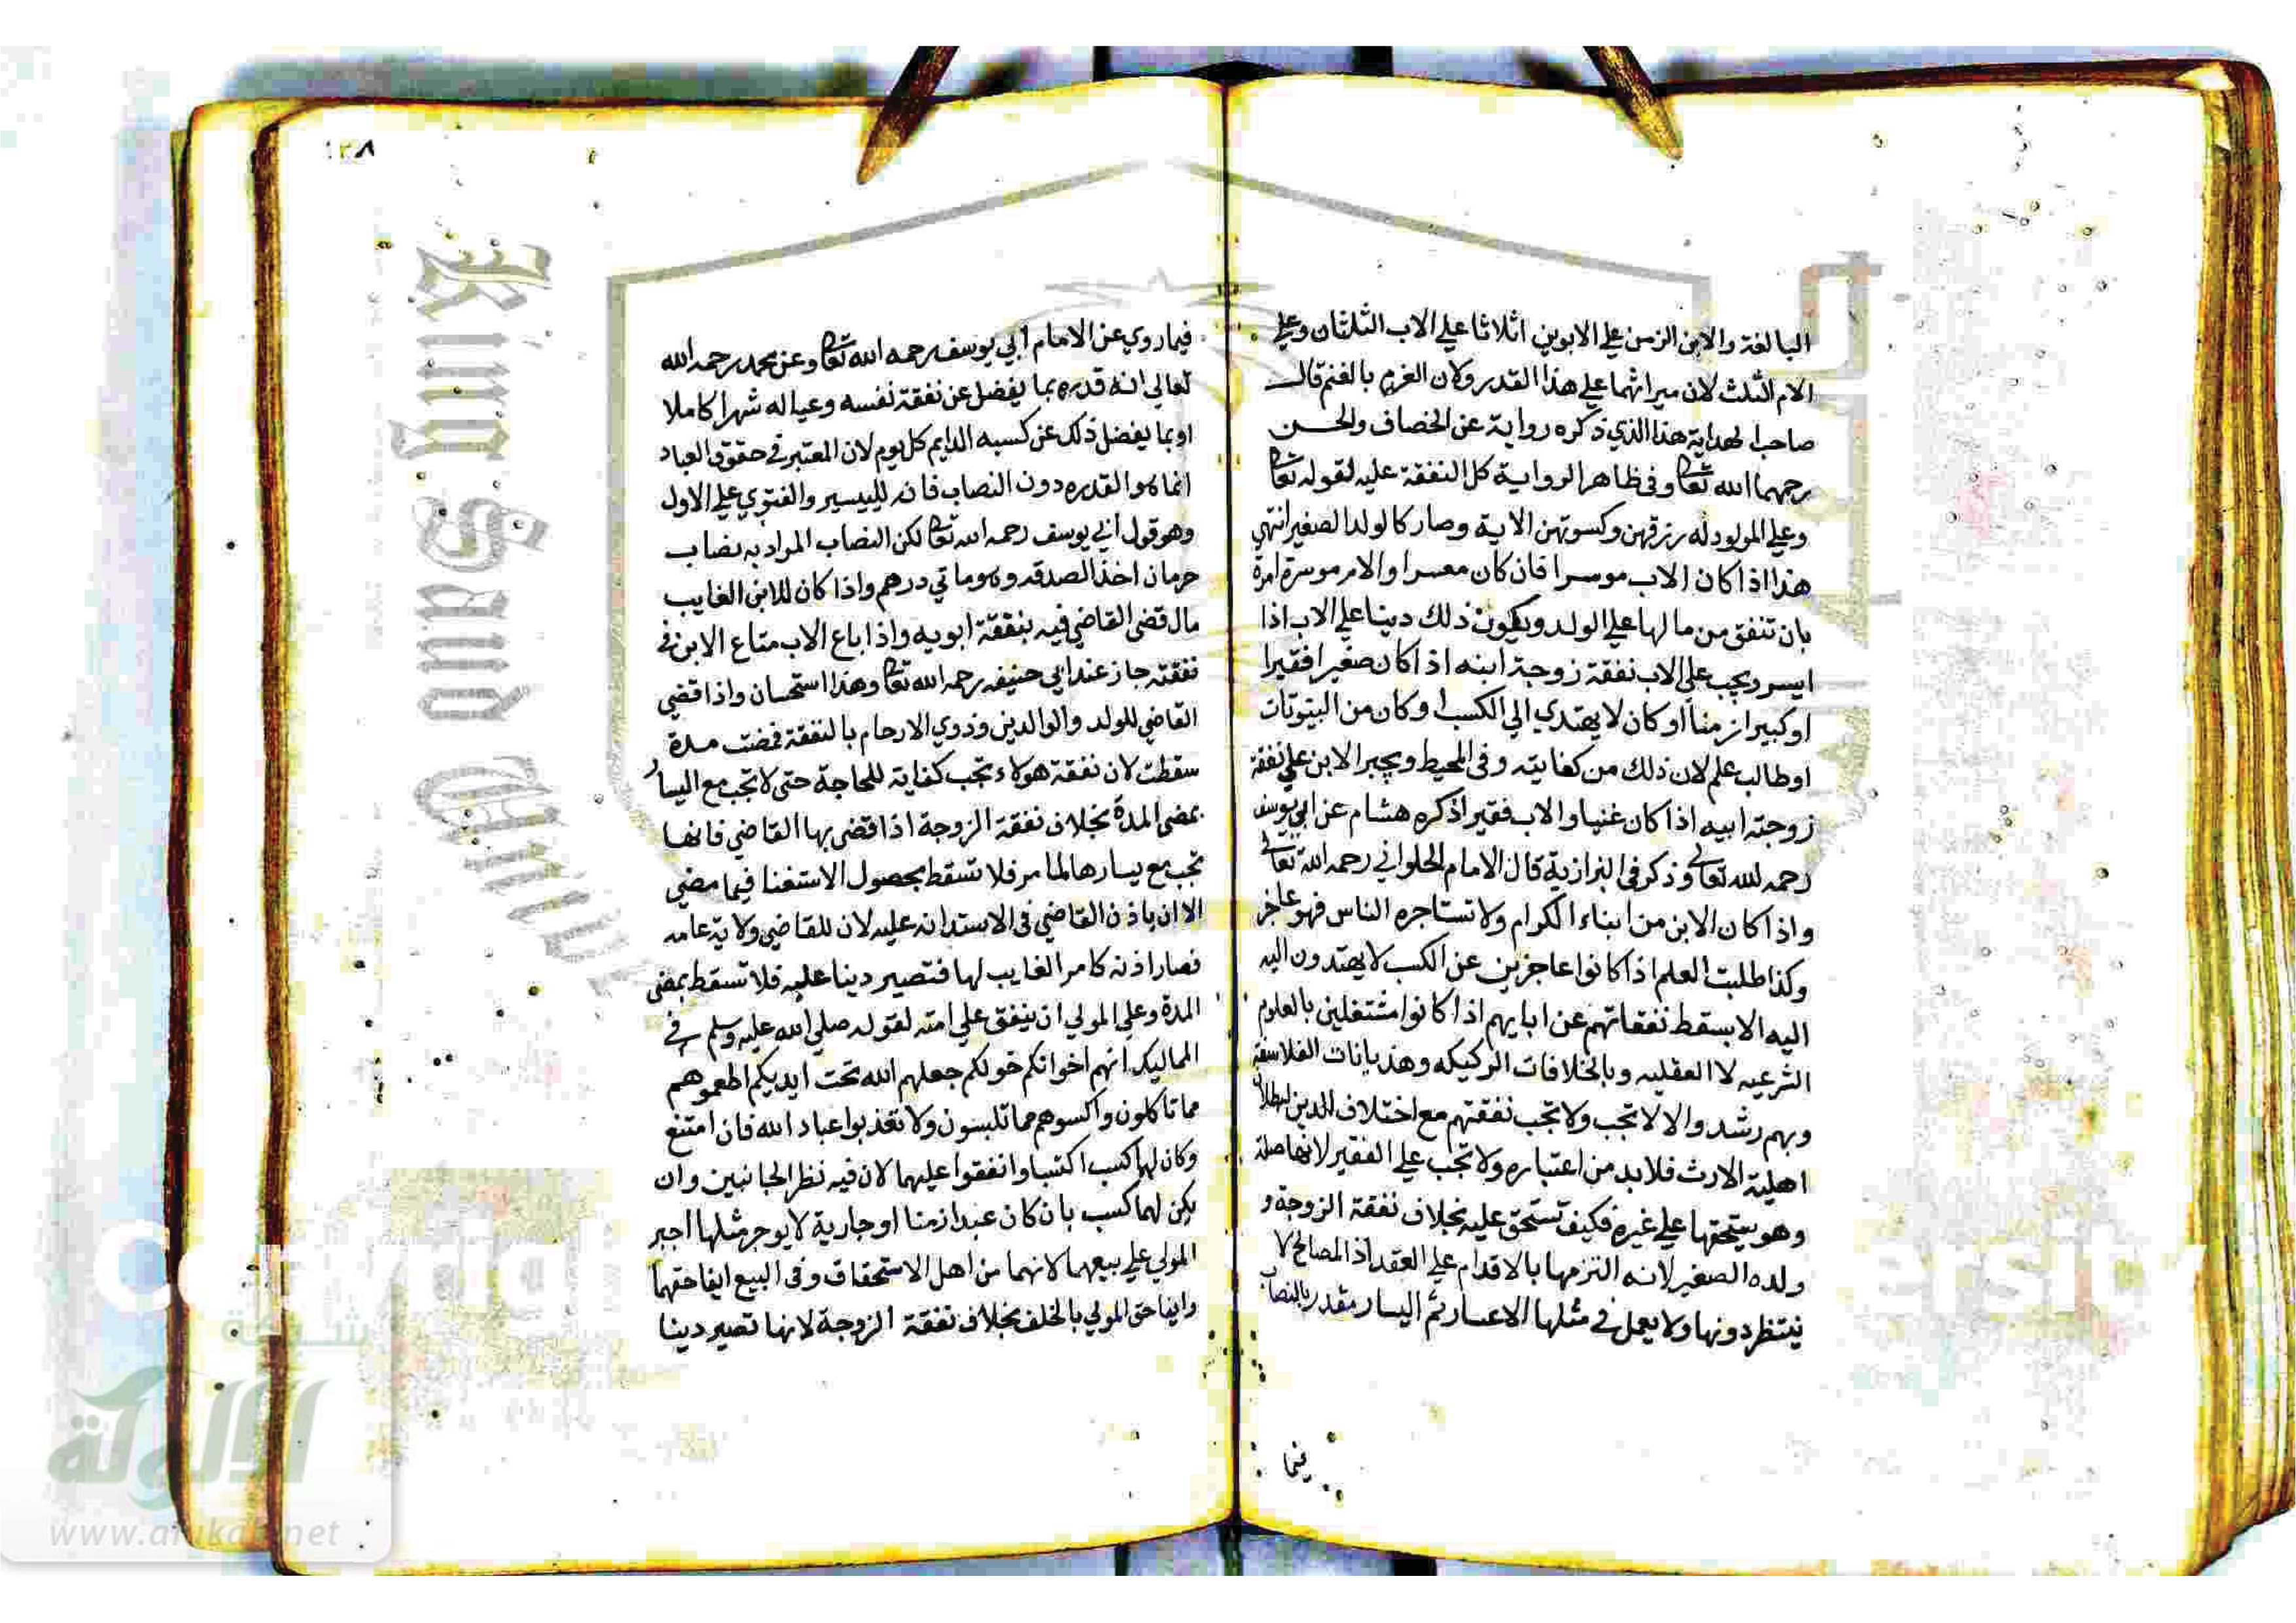 البالغة والابن الزمن علي الابوين اثلاثا علي الاب الثلثان وعلي
الام الثلث لان ميراثهما علي هذا القدر وكان الغرم بالغنم قال
صاحب الهداية هذا الذي ذكره رواية عن الخصاف والحسن
رحمهما الله تعا وفي ظاهر الرواية كل النفقة عليه لقوله تعا
وعلي المولود له رزقهن وكسوتهن الاية وصار كالولد الصغير انتهي
هذا اذا كان الاب موسرا فان كان معسرا والام موسرة امرة
بان تنفق من مالها علي الولد ويكون ذلك دينا علي الاب اذا
ايسر ويجب علي الاب نفقة زوجة ابنه اذا كان صغيرا فقيرا
او كبيرا زمنا او كان لا يهتدي الي الكسب او كان من البيوتات
او طالب علم لان ذلك من كفايته وفي المحيط ويجبر الابن علي نفقة
زوجة ابيه اذا كان غنيا والاب فقيرا ذكره هشام عن ابي يوسف
رحمه لله تعالي وذكر في البزازية قال الامام الحلواني رحمه الله تعالي
واذا كان الابن من ابناء الكرام ولا تستاجره الناس فهو عاجز
وكذا طلبت العلم اذا كانوا عاجزين عن الكسب لا يهتدون اليه
اليه لا يسقط نفقاتهم عن ابايهم اذا كانوا مشتغلين بالعلوم
الشرعيه لا العقليه وبالخلافات الركيكه وهذيانات الفلاسفة
وبهم رشد والا لا تجب ولا تجب نفقتهم مع اختلاف الدين لبطلان
اهلية الارث فلا بد من اعتباره ولا تجب علي الفقير لانها صلة
وهو يستحقها علي غيره فكيف تستحق عليه بخلاف نفقة الزوجة و
ولده الصغير لانه التزمها بالاقدام علي العقد اذ المصالح لا
تنتظر دونها ولا يعمل في مثلها الاعسار ثم اليسار مقدر بالنصاب
فيما
١٣٨
فيما روي عن الامام ابي يوسف رحمه الله تعا وعن محمد رحمه الله
تعالي انه قدره بما يفضل عن نفقة نفسه وعياله شهرا كاملا
او بما يفضل ذلك عن كسبه الدايم كل يوم لان المعتبر في حقوق العباد
انما هو القدره دون النصاب فانه للييسير والفتوي علي الاول
وهو قول ابي يوسف رحمه الله تعا لكن النصاب المراد به نصاب
حرمان اخذ الصدقه وهو ماتي درهم واذا كان للابن الغايب
مال قضي القاضي فيه بنفقة ابويه واذا باع الاب متاع الابن في
نفقته جاز عند ابي حنيفه رحمه الله تعا وهذا استحسان واذا قضي
القاضي للولد والوالدين وذوي الارحام بالنفقة فمضت مدة
سقطت لان نفقة هولاء تجب كفاية للحاجة حتي لا تجب مع اليسار
بمضي المدة بخلاف نفقة الزوجة اذا قضي بها القاضي فانها
تجب مع يسارها لما مر فلا تسقط بحصول الاستغنا فيما مضي
الا ان ياذن القاضي في الاستدانه عليه لان للقاضي ولاية عامه
فصار اذنه كامر الغايب لها فتصير دينا عليه فلا تسقط بمضي
المدة وعلي المولي ان ينفق علي امته لقوله صلي الله عليه وسلم في
المماليك انهم اخوانكم خولكم جعلهم الله تحت ايديكم اطعموهم
مما تاكلون واكسوهم مما تلبسون ولا تعذبوا عباد الله فان امتنع
وكان لهما كسب اكتسبا وانفقوا عليهما لان فيه نظر الجانبين وان
يكن لهما كسب بان كان عبدا زمنا او جارية لا يوجر مثلها اجبر
المولي علي بيعهما لانهما من اهل الاستحقاق وفي البيع ايفا حقهما
وايفا حق المولي بالخلف بخلاف نفقة الزوجة لانها تصير دينا
King Saud University
شبكة
الألوكة
www.alukah.net